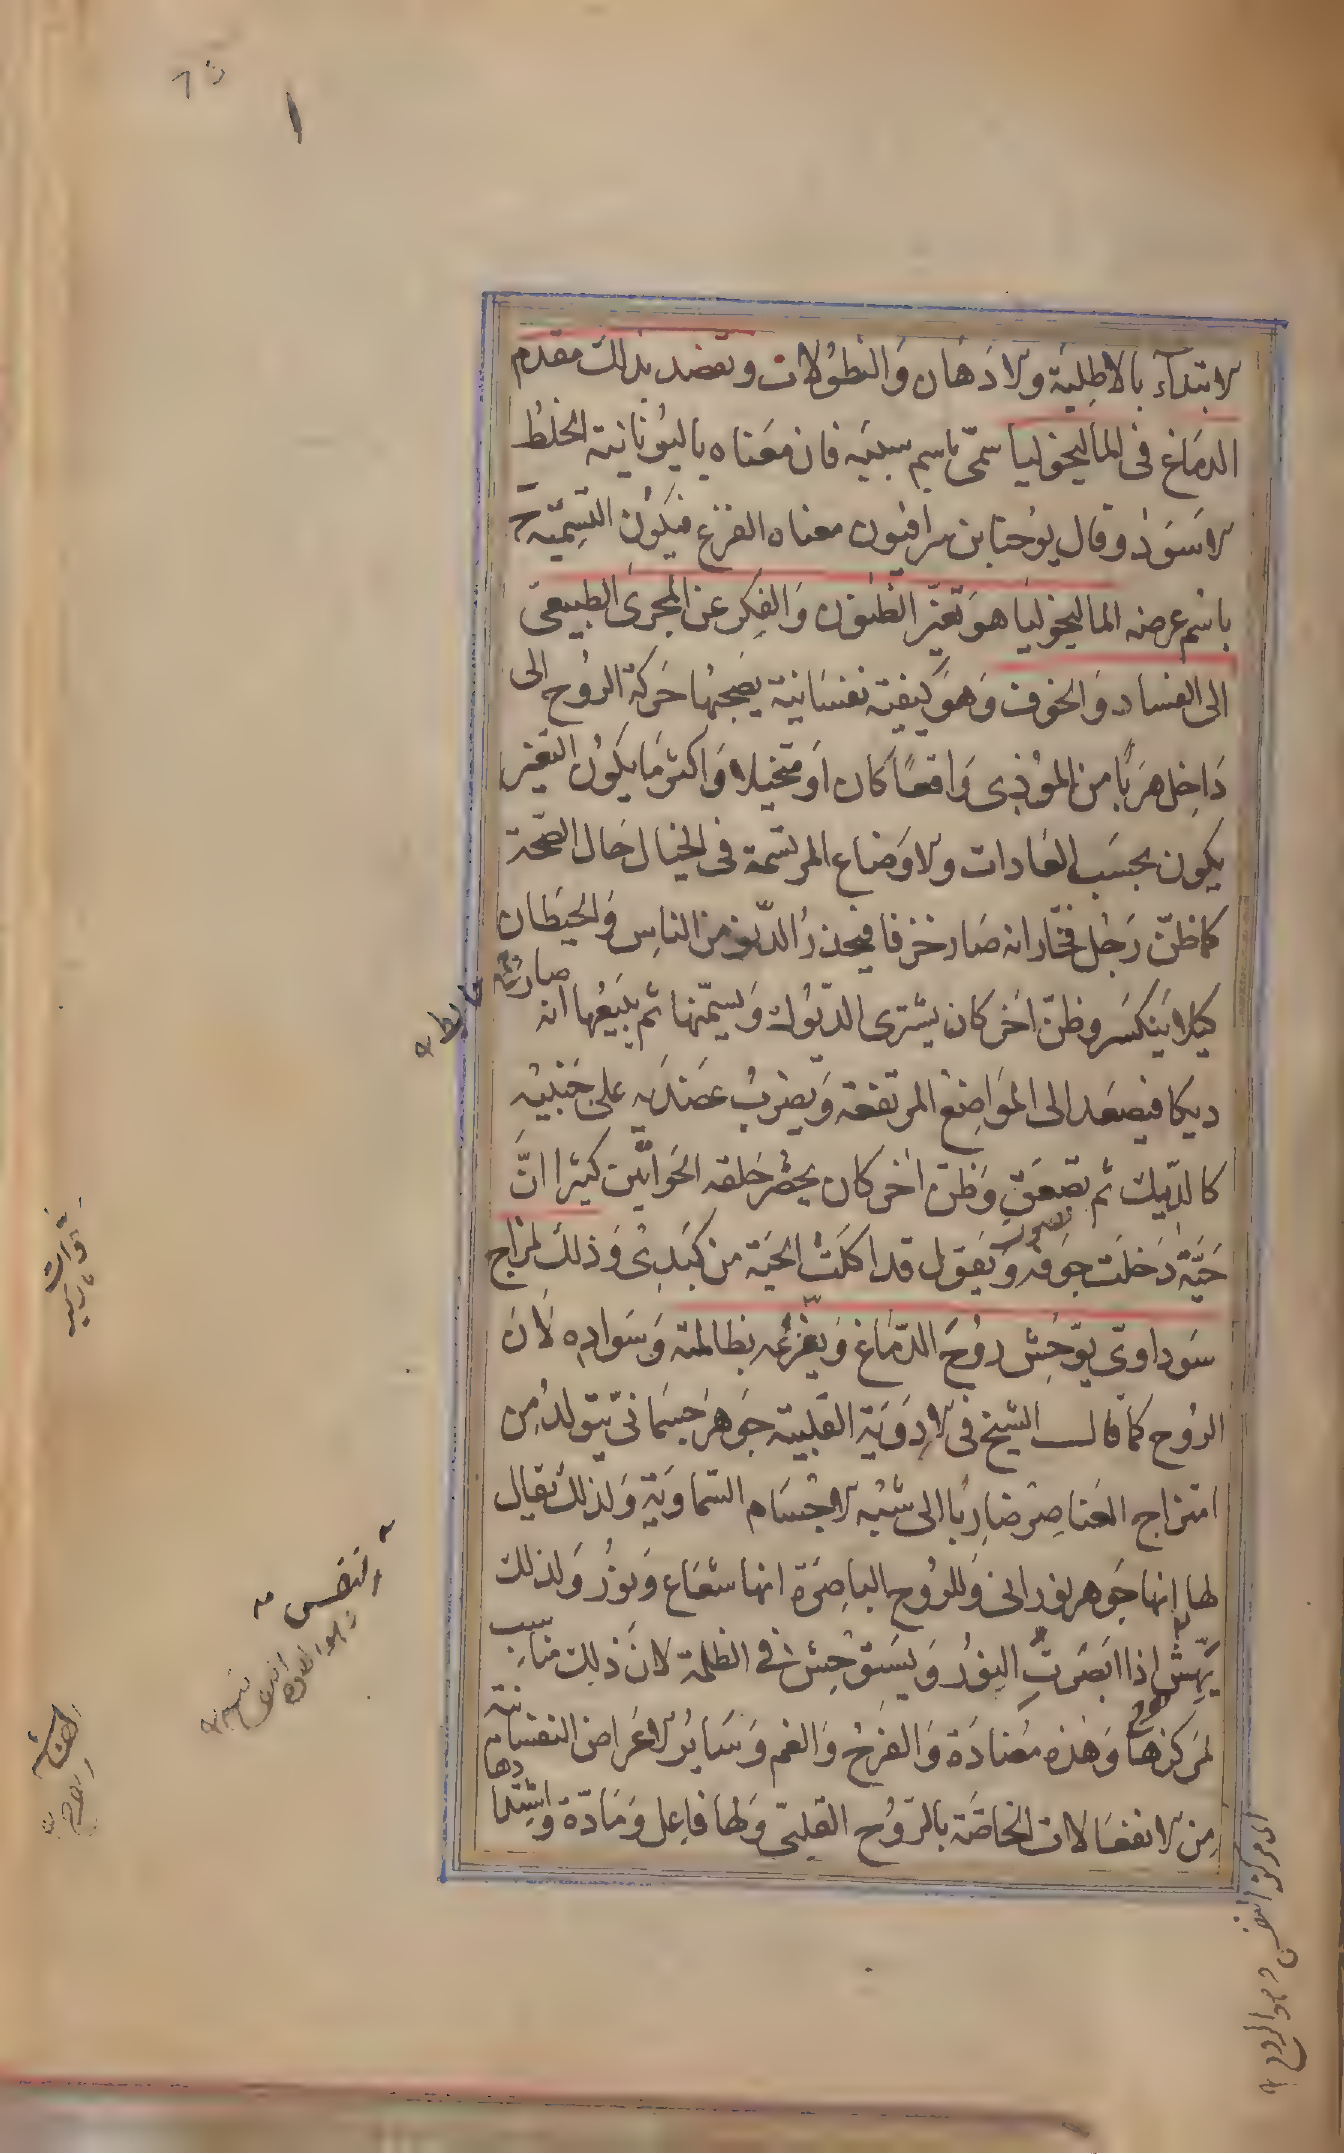 الابتداء بالاطلية والادهان والنطولات وتقصد بذلك مقدم
الدماغ فى الماليخوليا سمّى باسم سببه فان معناه باليونانية الخلط
الاسود وقال يوحنا بن سرافيون معناه الفزع فيكون التسمية ح
باسم عرضه الماليخوليا هو تغيّر الظنون والفكر عن المجرى الطبيعى
الى الفساد والخوف وهو كيفية نفسانية يصحبها حركة الروح الى
داخل هربًا من الموذى واقعًا كان او متخيلا واكثر ما يكون التغير
يكون بحسب العادات والاوضاع المرتسمة فى الخيال حال الصحة
كما ظنّ رجل فخّار انه صار خزفا فيحذر الدنو من الناس والحيطان
كيلا ينكسر وظنّ اخر كان يشترى الديوك ويسمّنها ثم يبيعها انه صار
ديكا فيصعد الى المواضع المرتفعة ويضرب عضديه على جنبيه
كالديك ثم يصعق وظن اخر كان يحضر حلقه الحوائين كثيرا انّ
حيّة دخلت جوفه ويقول قد اكلت الحية من كبدى وذلك لمزاج
سوداوىّ يوحش روح الدماغ ويفزعه بظلمته وسواده لان
الروح كما قال الشيخ فى الادوية القلبية جوهر جسمانىّ يتولد من
امتزاج العناصر ضاربا الى شبه الاجسام السماوية ولذلك يقال
لها انها جوهر نورانى وللروح الباصرة انها شعاع ونور ولذلك
يهش اذا ابصرت النور ويستوحش فى الظلمة لان ذلك مناسب
لمركزها وهذه مضادة والفرح والغم وساير الاعراض النفسانية
من الانفعالات الخاصة بالروح القلبى ولها فاعل ومادة واشتدادها
النفس